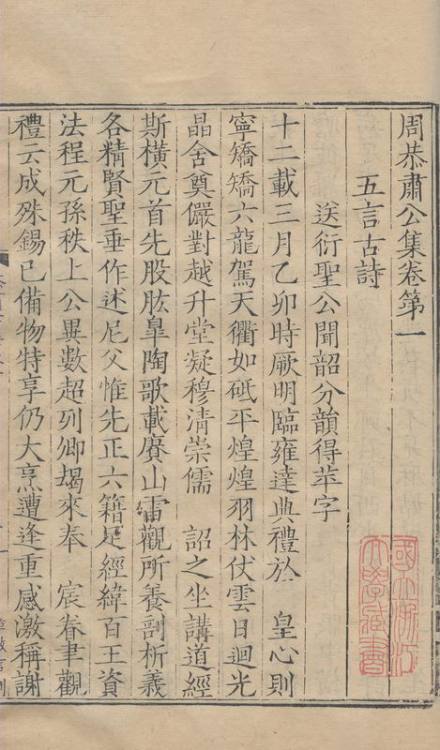 周恭肅公集卷第一
五言古詩
送衍聖公聞韶分韻得苹字
十二載三月乙卯時厥明臨雍達典禮於　皇心則
寧矯矯六龍駕天衢如砥平煌煌羽林伏雲日迴光
晶舍奠儼對越升堂凝穆清崇儒　詔之坐講道經
斯橫元首先股肱臯陶歌載賡山雷觀所養剖析義
各精賢聖垂作述尼父惟先正六籍是經緯百王資
法程元孫秩上公異數超列卿朅來奉　宸眷聿觀
禮云成殊錫已備物特享仍大烹遭逢重感激稱謝
國立浙江大學藏書